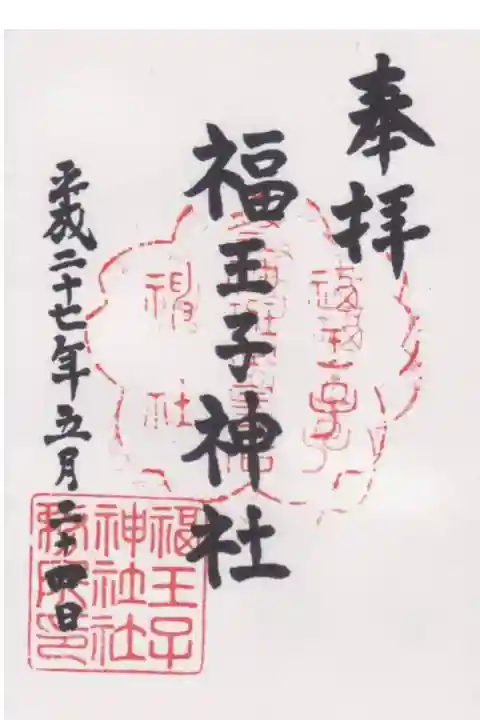 奉拝
福王子神社
平成二十七年五月二十四日
福王子
神社社
務所印